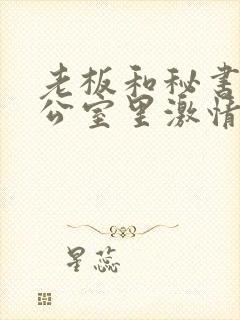 老板和秘书
公室里激情
星蕊